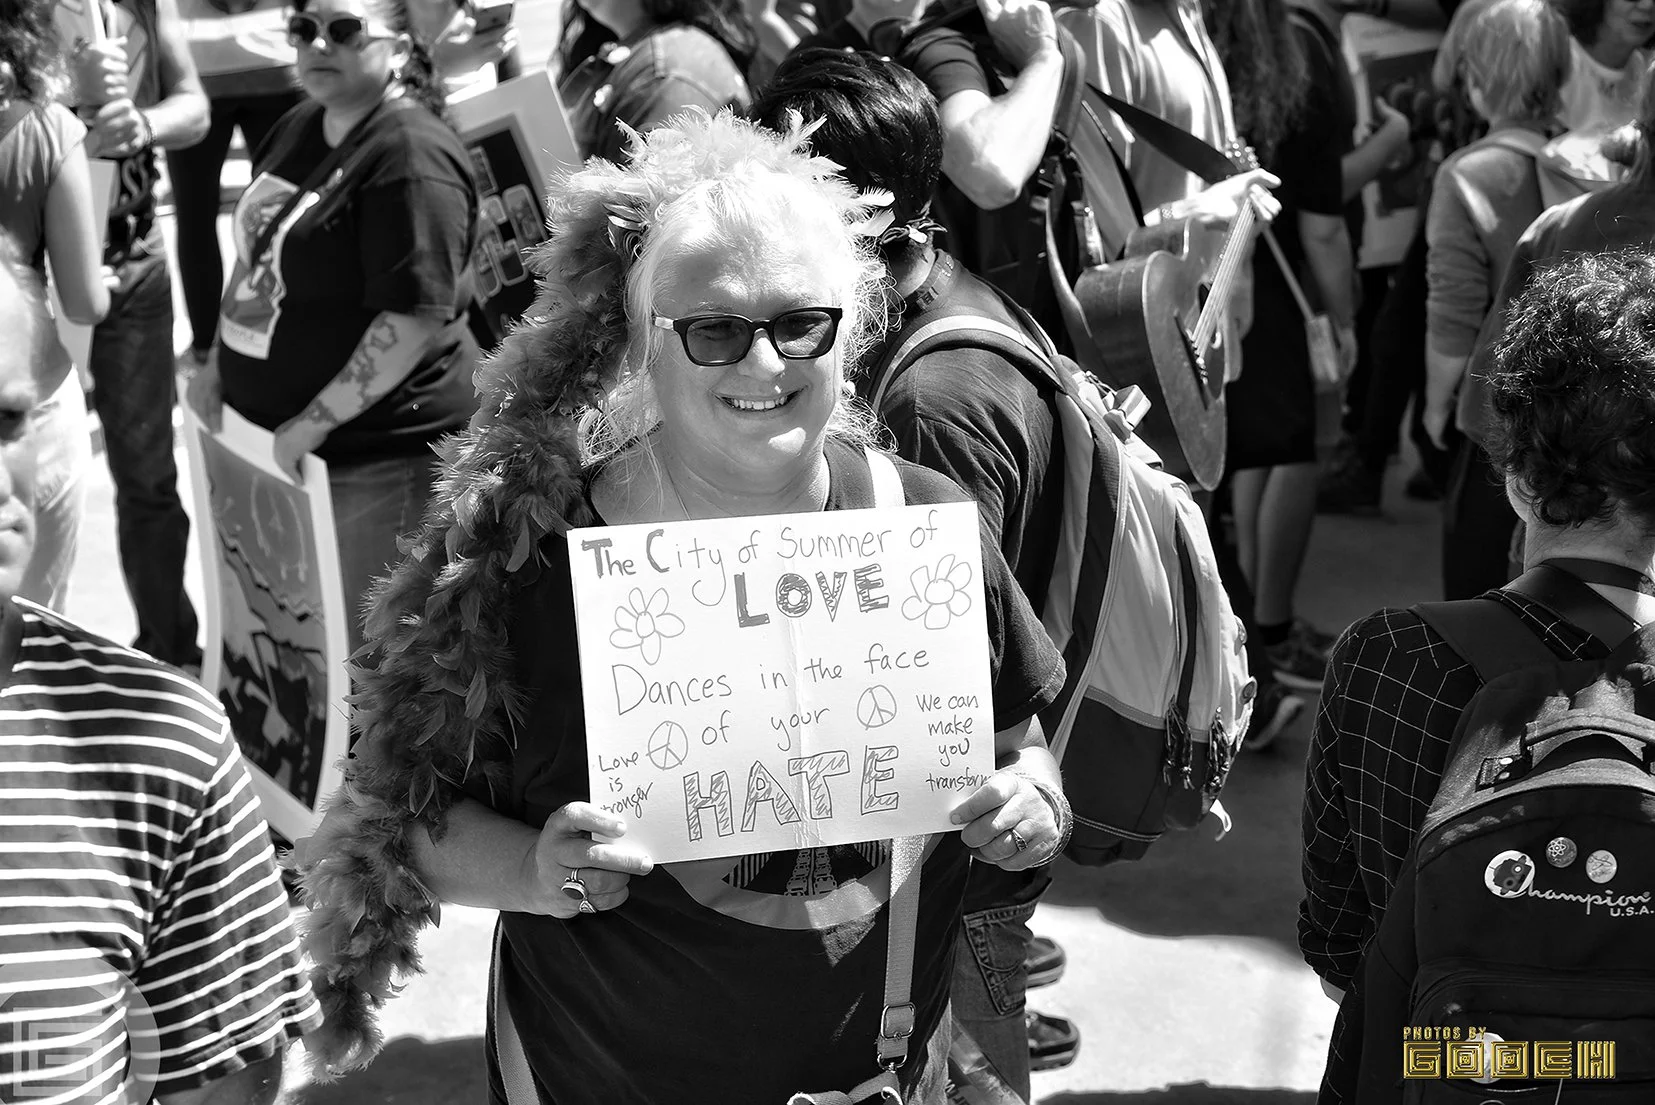 The City of Summer of
LOVE
Dances in the face
of your
HATE
Love
is
We can
make
you
Champion
U.S.A.
PHOTOS BY
GOOCH